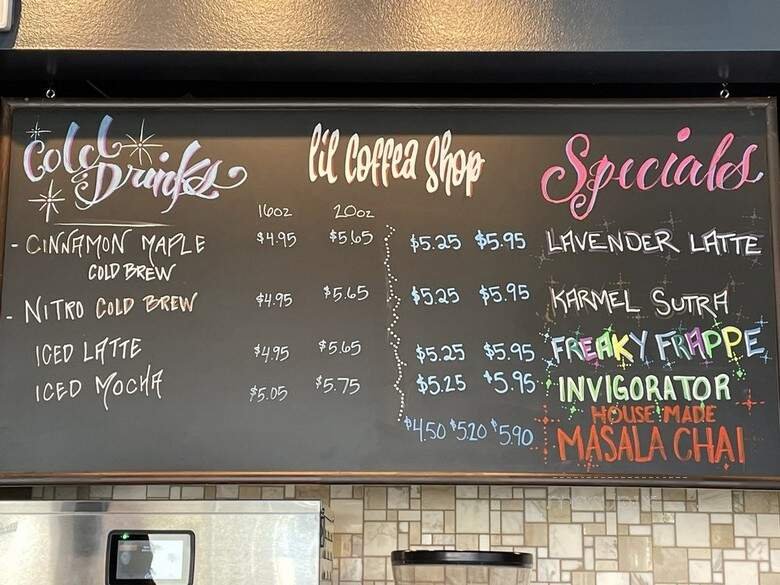 Cold Drinks
lil Coffea Shop
Specials
16oz 20oz
- CINNAMON MAPLE $4.95 $5.65
COLD BREW
- NITRO COLD BREW $4.95 $5.65
ICED LATTE $4.95 $5.65
ICED MOCHA $5.05 $5.75
$5.25 $5.95 LAVENDER LATTE
$5.25 $5.95 KARMEL SUTRA
$5.25 $5.95 FREAKY FRAPPE
$5.25 $5.95 INVIGORATOR
HOUSE MADE
$4.50 $5.20 $5.90 MASALA CHAI